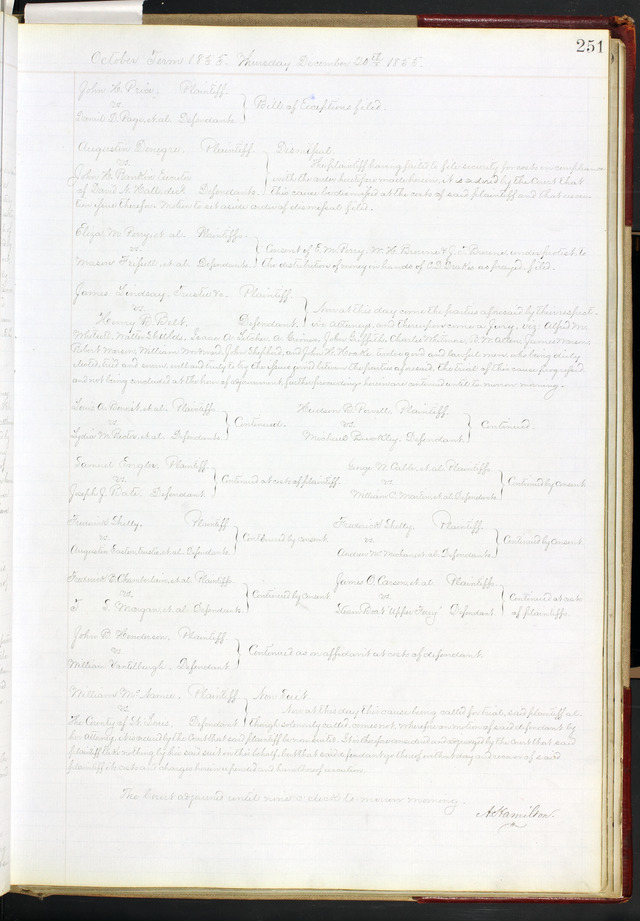 251
October Term 1855. Thursday December 20th 1855.
John H. Price. Plaintiff.
vs.
Daniel D. Page, et al. Defendants.
Bill of Exceptions filed.
Augustin Plaintiff. Dismissed
vs. The plaintiff having failed to file security for costs in compliance
John H. Rankin, Executor with the order heretofore made herein, it is ordered by the Court that
of David N. Defendants. this cause be dismissed at the costs of said plaintiff and that
therefor. Motion to set aside order of dismissal filed.
Eliza M. Perry, et al. Plaintiffs.
vs. Consent of E. M. Perry, W. H. Browne & J. Browne, under protest, to
Mason et al. Defendants. the distribution of money in hands of C. D. Drake as prayed, filed.
James Lindsay, Trustee &c. Plaintiff.
vs. Now at this day come the parties aforesaid by their respect-
Henry B. Belt. Defendant. ive attorneys, and thereupon come a jury, viz: Alfred
Walter Shields, James A. John Griffith, Charles Allen, James
Robert William John Shepherd, and John H. good and lawful men, who being duly
elected, tried and sworn, well and truly to try the issue joined between the parties aforesaid, the trial of this cause progressed
and not being concluded at the hour of adjournment, further proceedings herein are continued until to morrow morning.
Louis A. Benoist, et al. Plaintiffs.
vs. Continued.
Lydia M. et al. Defendants.
Plaintiff.
vs. Continued.
Michael Defendant.
Samuel Plaintiff
vs. Continued at costs of plaintiff.
Joseph J. Bates. Defendant.
George W. et al. Plaintiffs.
vs. Continued by consent.
William et al. Defendants.
Frederick Shelly. Plaintiff
vs. Continued by consent.
Augustin et al. Defendants.
Frederick Shelly. Plaintiff.
vs. Continued by consent.
Andrew et al. Defendants.
Frederick E. Chamberlain, et al. Plaintiffs.
vs. Continued by consent
Morgan, et al. Defendants.
James C. Carson, et al. Plaintiffs.
vs. Continued at costs
Steam Boat "Upper Defendant. of plaintiffs.
John B. Henderson. Plaintiff.
vs. Continued as on affidavit at costs of defendant.
William Defendant.
William McNamee. Plaintiff. Non Suit
vs. Now at this day, this cause being called for trial, said plaintiff al-
The County of St. Louis. Defendant though solemnly called comes not: wherefore on motion of said defendant by
her attorney, it is ordered by the Court that said plaintiff be nonsuited. It is therefore considered and adjudged by the Court that said
plaintiff take nothing by his said suit in this behalf, but that said defendant go thereof without day and recover of said
plaintiff its costs and charges herein expended and have thereof execution.
The Court adjourned until nine o'clock to morrow morning.
A. Hamilton.